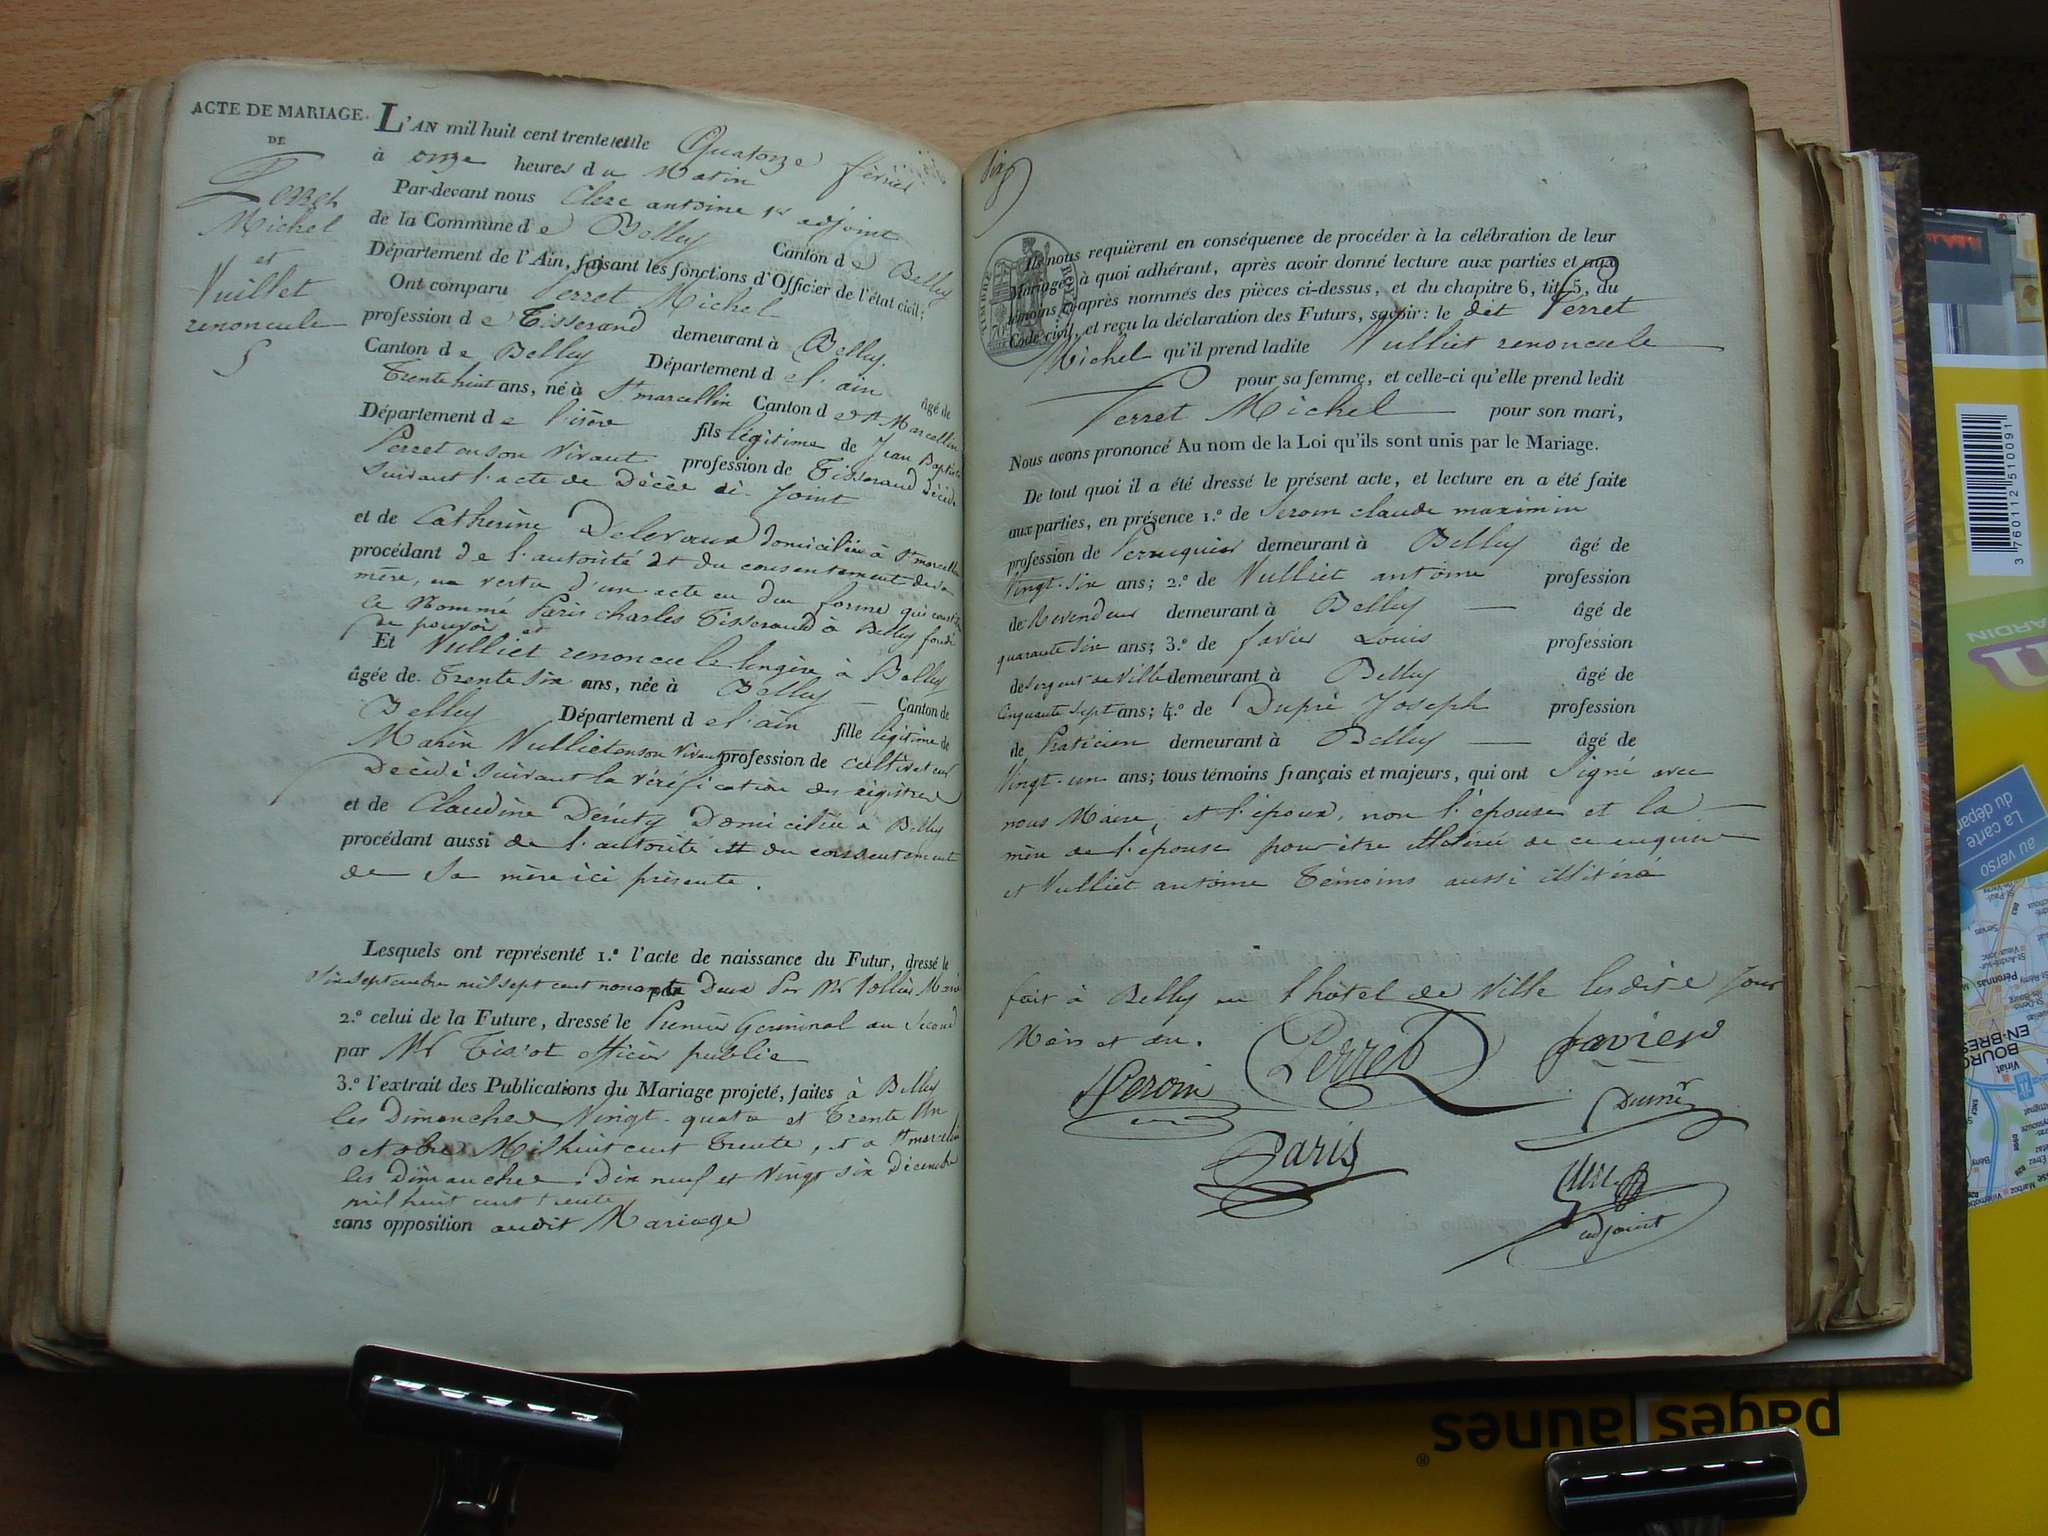 ACTE DE MARIAGE.
DE
Perret
Michel
et
Vuillet
renoncule
L'AN mil huit cent trente et le Quatorze février
à onze heures du Matin
Par-devant nous Clerc antoine 1er adjoint
de la Commune de Belley Canton de Belley
Département de l'Ain, faisant les fonctions d'Officier de l'état civil;
Ont comparu Perret Michel
profession de Tisserand demeurant à Belley.
Canton de Belley Département de l'ain âgé de
Trente huit ans, né à St marcellin Canton de St Marcellin
Département de l'isère fils légitime de Jean Baptiste
Perret en son Vivant profession de Tisserand Décédé
Suivant l'acte de Décès ci-Joint
et de Catherine domiciliée à St marcellin
procédant de l'autorité et du consentement de sa
mère, en vertu d'un acte en due forme qui
le Nommé Paris charles Tisserand à Belley fondé
de pouvoir et
Et Vulliet renoncule lingère à Belley
âgée de Trente Six ans, née à Belley Canton de
Belley Département de l'ain fille légitime de
Marin Vulliet en son Vivant profession de cultivateur
Décédé Suivant la vérification des régistres
et de Claudine Domiciliée à Belley
procédant aussi de l'autorité et du consentement
de Sa mère ici présente.
Lesquels ont représenté 1.º l'acte de naissance du Futur, dressé le
Six Septembre mil sept cent nonante Deux Par Mr
2.º celui de la Future, dressé le Premier Germinal an Second
par Mr Tissot officier public
3.º l'extrait des Publications du Mariage projeté, faites à Belley
les Dimanches Vingt-quatre et Trente Un
octobre Mil huit cent Trente, et à St marcellin
les Dimanches Dix neuf et Vingt six Décembre
mil huit cent trente
sans opposition audit Mariage
Six
TIMBRE ROYAL
Ils nous requièrent en conséquence de procéder à la célébration de leur
Mariage, à quoi adhérant, après avoir donné lecture aux parties et aux
témoins ci-après nommés des pièces ci-dessus, et du chapitre 6, tit. 5, du
Code civil, et reçu la déclaration des Futurs, savoir: le dit Perret
Michel qu'il prend ladite Vulliet renoncule
pour sa femme, et celle-ci qu'elle prend ledit
Perret Michel pour son mari,
Nous avons prononcé Au nom de la Loi qu'ils sont unis par le Mariage.
De tout quoi il a été dressé le présent acte, et lecture en a été faite
aux parties, en présence 1.º de claude maximin
profession de Perruquier demeurant à Belley âgé de
Vingt-six ans; 2.º de Vulliet antoine profession
de Revendeur demeurant à Belley âgé de
quarante Six ans; 3.º de favier Louis profession
de Sergent de Ville demeurant à Belley âgé de
Cinquante Sept ans; 4.º de Dupré Joseph profession
de Praticien demeurant à Belley âgé de
Vingt-un ans; tous témoins français et majeurs, qui ont Signé avec
nous Maire, et l'époux, non l'épouse et la
mère de l'épouse pour être illitéré de ce enquis
et Vulliet antoine Témoins aussi illitéré
fait à Belley en l'hôtel de Ville lesdits Jour
Mois et an.
Perret
favier
Paris
adjoint
pages jaunes
®
3 760112 510091
JARDIN
La carte
du dépar
au verso
BOURG
EN-BRES
Péronnas
Viriat